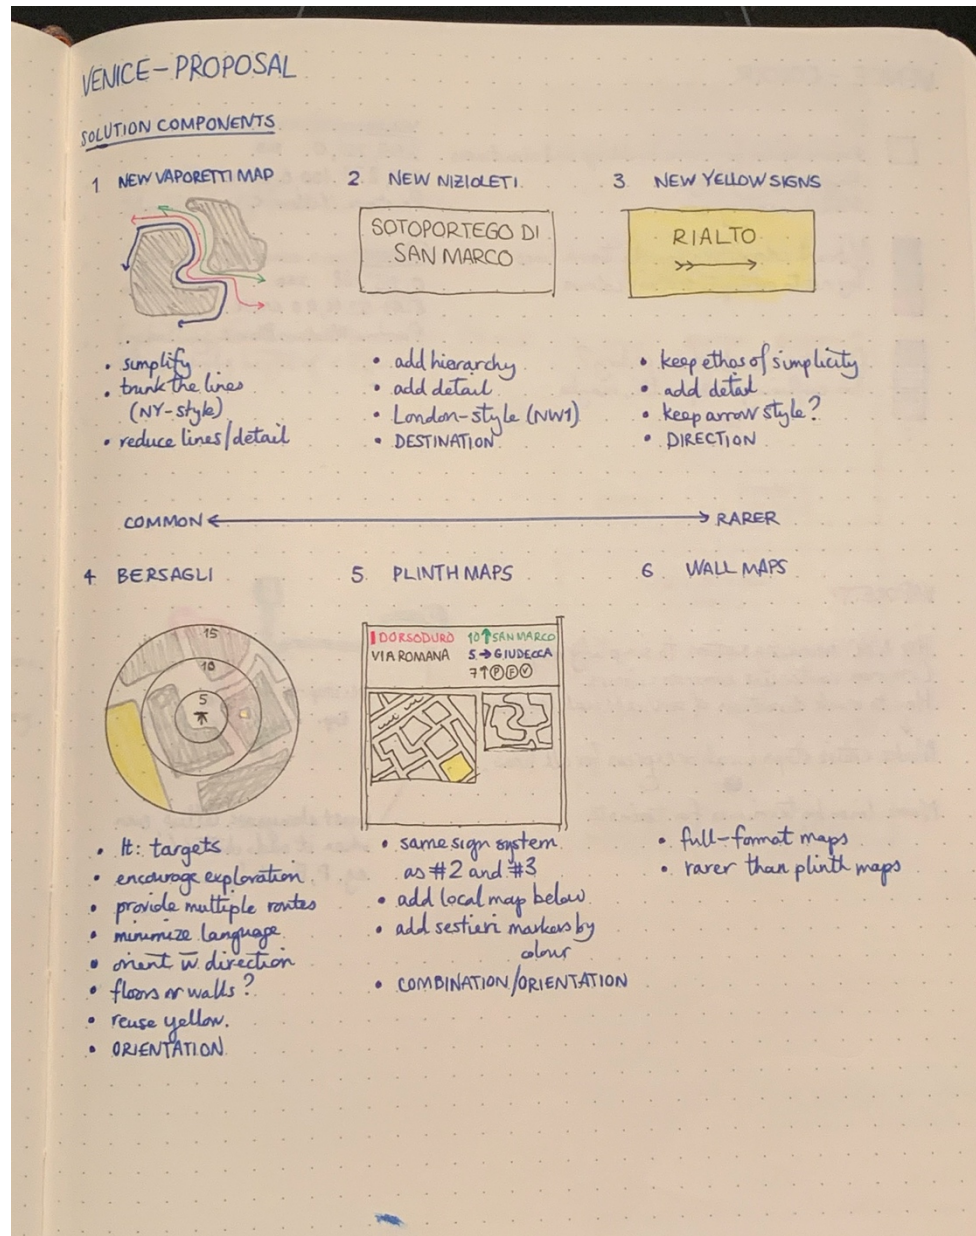 VENICE – PROPOSAL
SOLUTION COMPONENTS
1 NEW VAPORETTI MAP
• simplify
• trunk the lines
(NY-style)
• reduce lines/detail
2. NEW NIZIOLETI.
SOTOPORTEGO DI
SAN MARCO
• add hierarchy
• add detail
• London-style (NW1)
• DESTINATION
3. NEW YELLOW SIGNS
RIALTO
• keep ethos of simplicity
• add detail
• keep arrow style?
• DIRECTION
COMMON
RARER
4 BERSAGLI
15
10
5
• It: targets
• encourage exploration
• provide multiple routes
• minimize language
• orient w̅. direction
• floors or walls?
• reuse yellow.
• ORIENTATION
5. PLINTH MAPS
DORSODURO
VIA ROMANA
10 ↑ SAN MARCO
5 → GIUDECCA
7 ↑ Ⓟ Ⓕ Ⓥ
• same sign system
as #2 and #3
• add local map below
• add sestieri markers by
colour
• COMBINATION/ORIENTATION
6 WALL MAPS
• full-format maps
• rarer than plinth maps